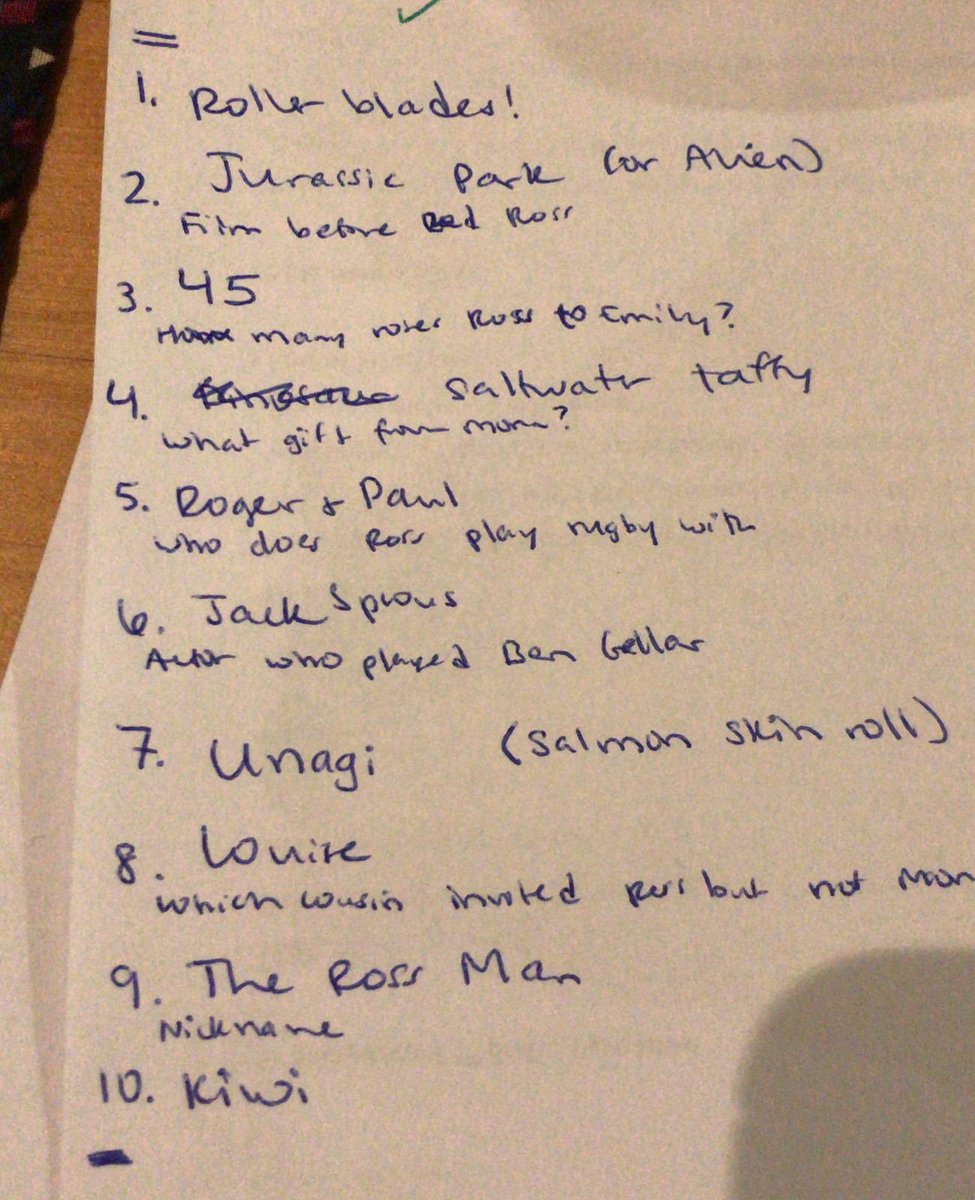 1. Roller blades!
2. Jurassic Park (or Alien)
Film before bed Ross
3. 45
many roses Ross to Emily?
4. saltwater taffy
what gift from mona?
5. Roger & Paul
who does Ross play rugby with
6. Jack Sprous
Actor who played Ben Gellar
7. Unagi (salmon skin roll)
8. Louise
which cousin invited Ross but not Mon
9. The Ross Man
Nickname
10. Kiwi